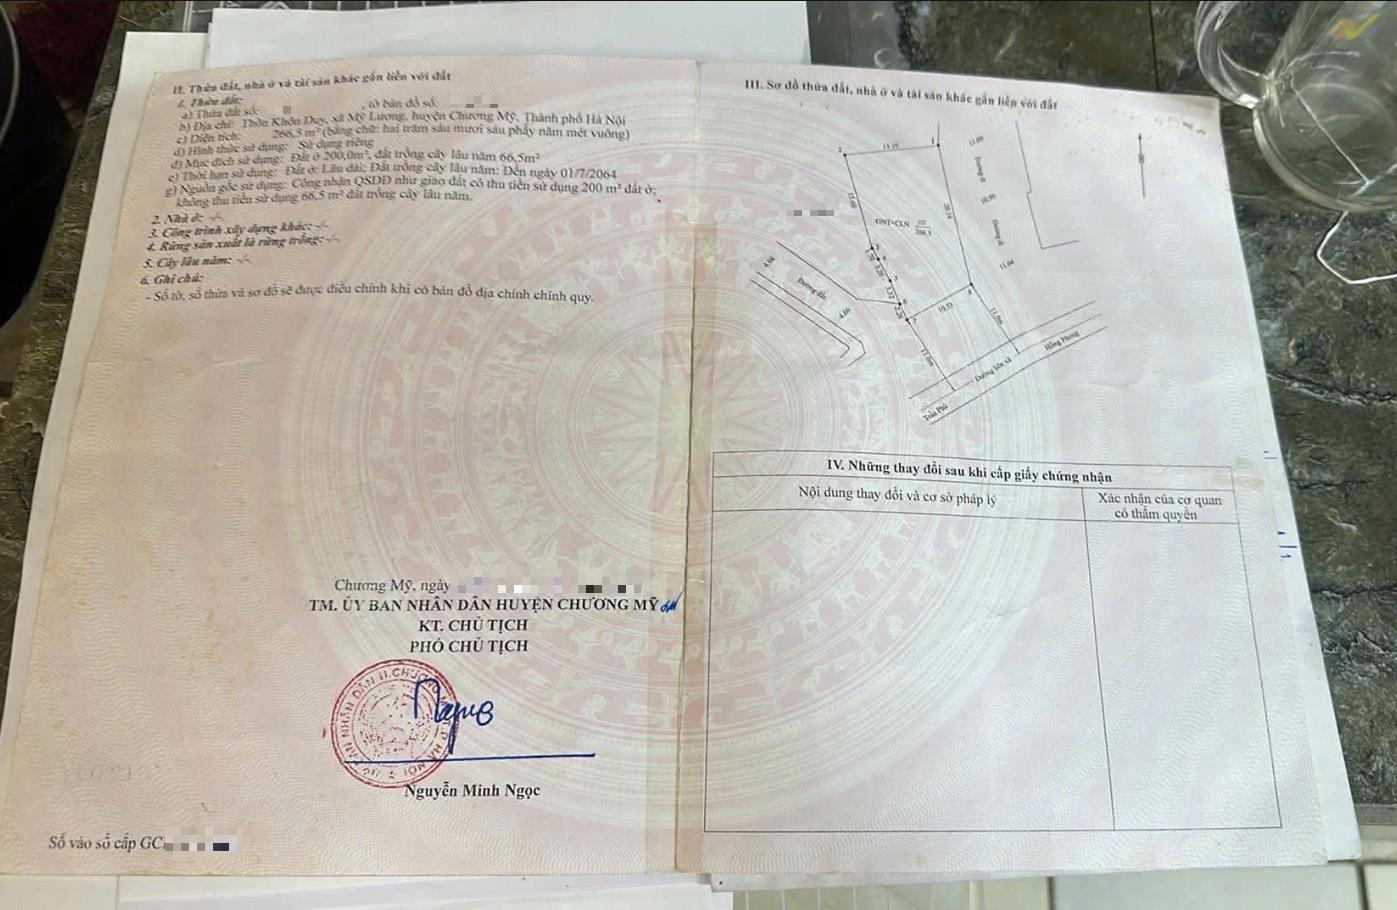 II. Thửa đất, nhà ở và tài sản khác gắn liền với đất
1. Thửa đất:
a) Thửa đất số: , tờ bản đồ số:
b) Địa chỉ: Thôn Khôn Duy, xã Mỹ Lương, huyện Chương Mỹ, Thành phố Hà Nội
c) Diện tích: 266,5 m² (bằng chữ: hai trăm sáu mươi sáu phẩy năm mét vuông)
d) Hình thức sử dụng: Sử dụng riêng
đ) Mục đích sử dụng: Đất ở 200,0m², đất trồng cây lâu năm 66,5m²
e) Thời hạn sử dụng: Đất ở: Lâu dài; Đất trồng cây lâu năm: Đến ngày 01/7/2064
g) Nguồn gốc sử dụng: Công nhận QSDĐ như giao đất có thu tiền sử dụng 200 m² đất ở;
không thu tiền sử dụng 66,5 m² đất trồng cây lâu năm.
2. Nhà ở: -/-
3. Công trình xây dựng khác: -/-
4. Rừng sản xuất là rừng trồng: -/-
5. Cây lâu năm: -/-
6. Ghi chú:
- Số tờ, số thửa và sơ đồ sẽ được điều chỉnh khi có bản đồ địa chính chính quy.
Chương Mỹ, ngày
TM. ỦY BAN NHÂN DÂN HUYỆN CHƯƠNG MỸ
KT. CHỦ TỊCH
PHÓ CHỦ TỊCH
Nguyễn Minh Ngọc
Số vào sổ cấp GC
III. Sơ đồ thửa đất, nhà ở và tài sản khác gắn liền với đất
2
1
Đường đi
ONT+CLN
266.5
20.14
Đường đi
3
4
5
6
7
8
11.64
4.98
Đường đất
4.66
3.32
10.53
11.0m
11.0m
Trần Phú
Đường liên xã
Hồng Phong
IV. Những thay đổi sau khi cấp giấy chứng nhận
Nội dung thay đổi và cơ sở pháp lý
Xác nhận của cơ quan
có thẩm quyền